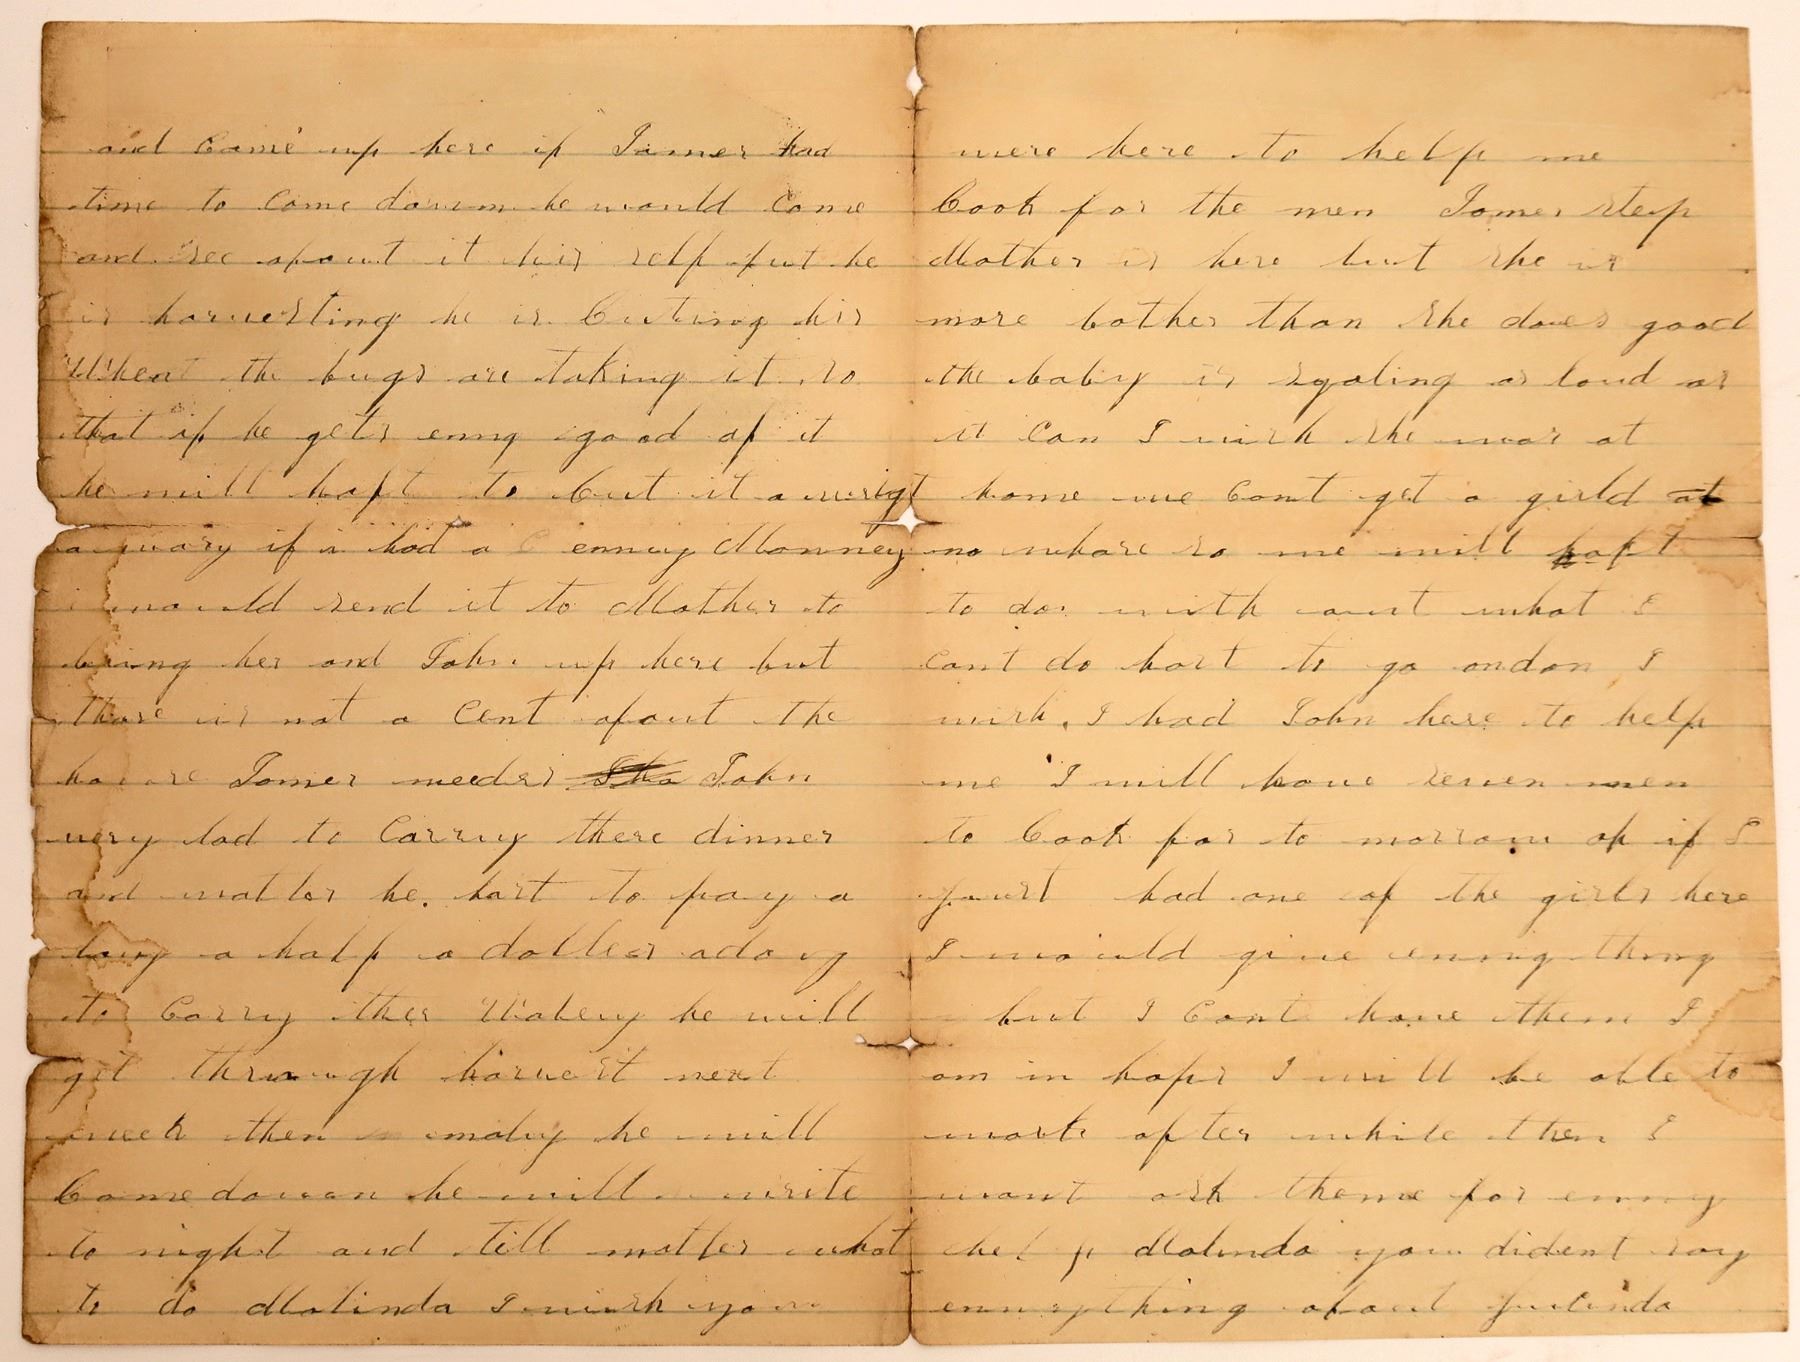 and Came up here if James had
time to Come downn he would Come
and see apout it his self put he
is harvesting he is Cuting his
Wheat the bugs are taking it so
that if he gets enny good of it
he will haft to Cut it awright
away if i had a enny Monney
i would send it to Mother to
bring her and John up here but
thare is not a Cent apout the
house James needs John
very bad to Carry there dinner
and watter he hast to pay a
boy a half a doller aday
to Carry ther Watery he will
get through harvest next
week then maby he will
Come down he will write
to night and till mother what
to do Malinda I wish you
were here to help me
Cook for the men James step
Mother is here but she is
more bother than she does good
the baby is sqaling as loud as
it Can I wish she was at
home we Cant get a girld at
no whare so we will haft
to do with out what I
Cant do hast to go ondon I
wish I had John here to help
me I will have seven men
to Cook for to morrow oh if I
just had one of the girls here
I would give enny thing
but I Cant have them I
am in hops I will be able to
work after while then I
wont ask theme for enny
help Malinda you dident say
ennything about Julinda